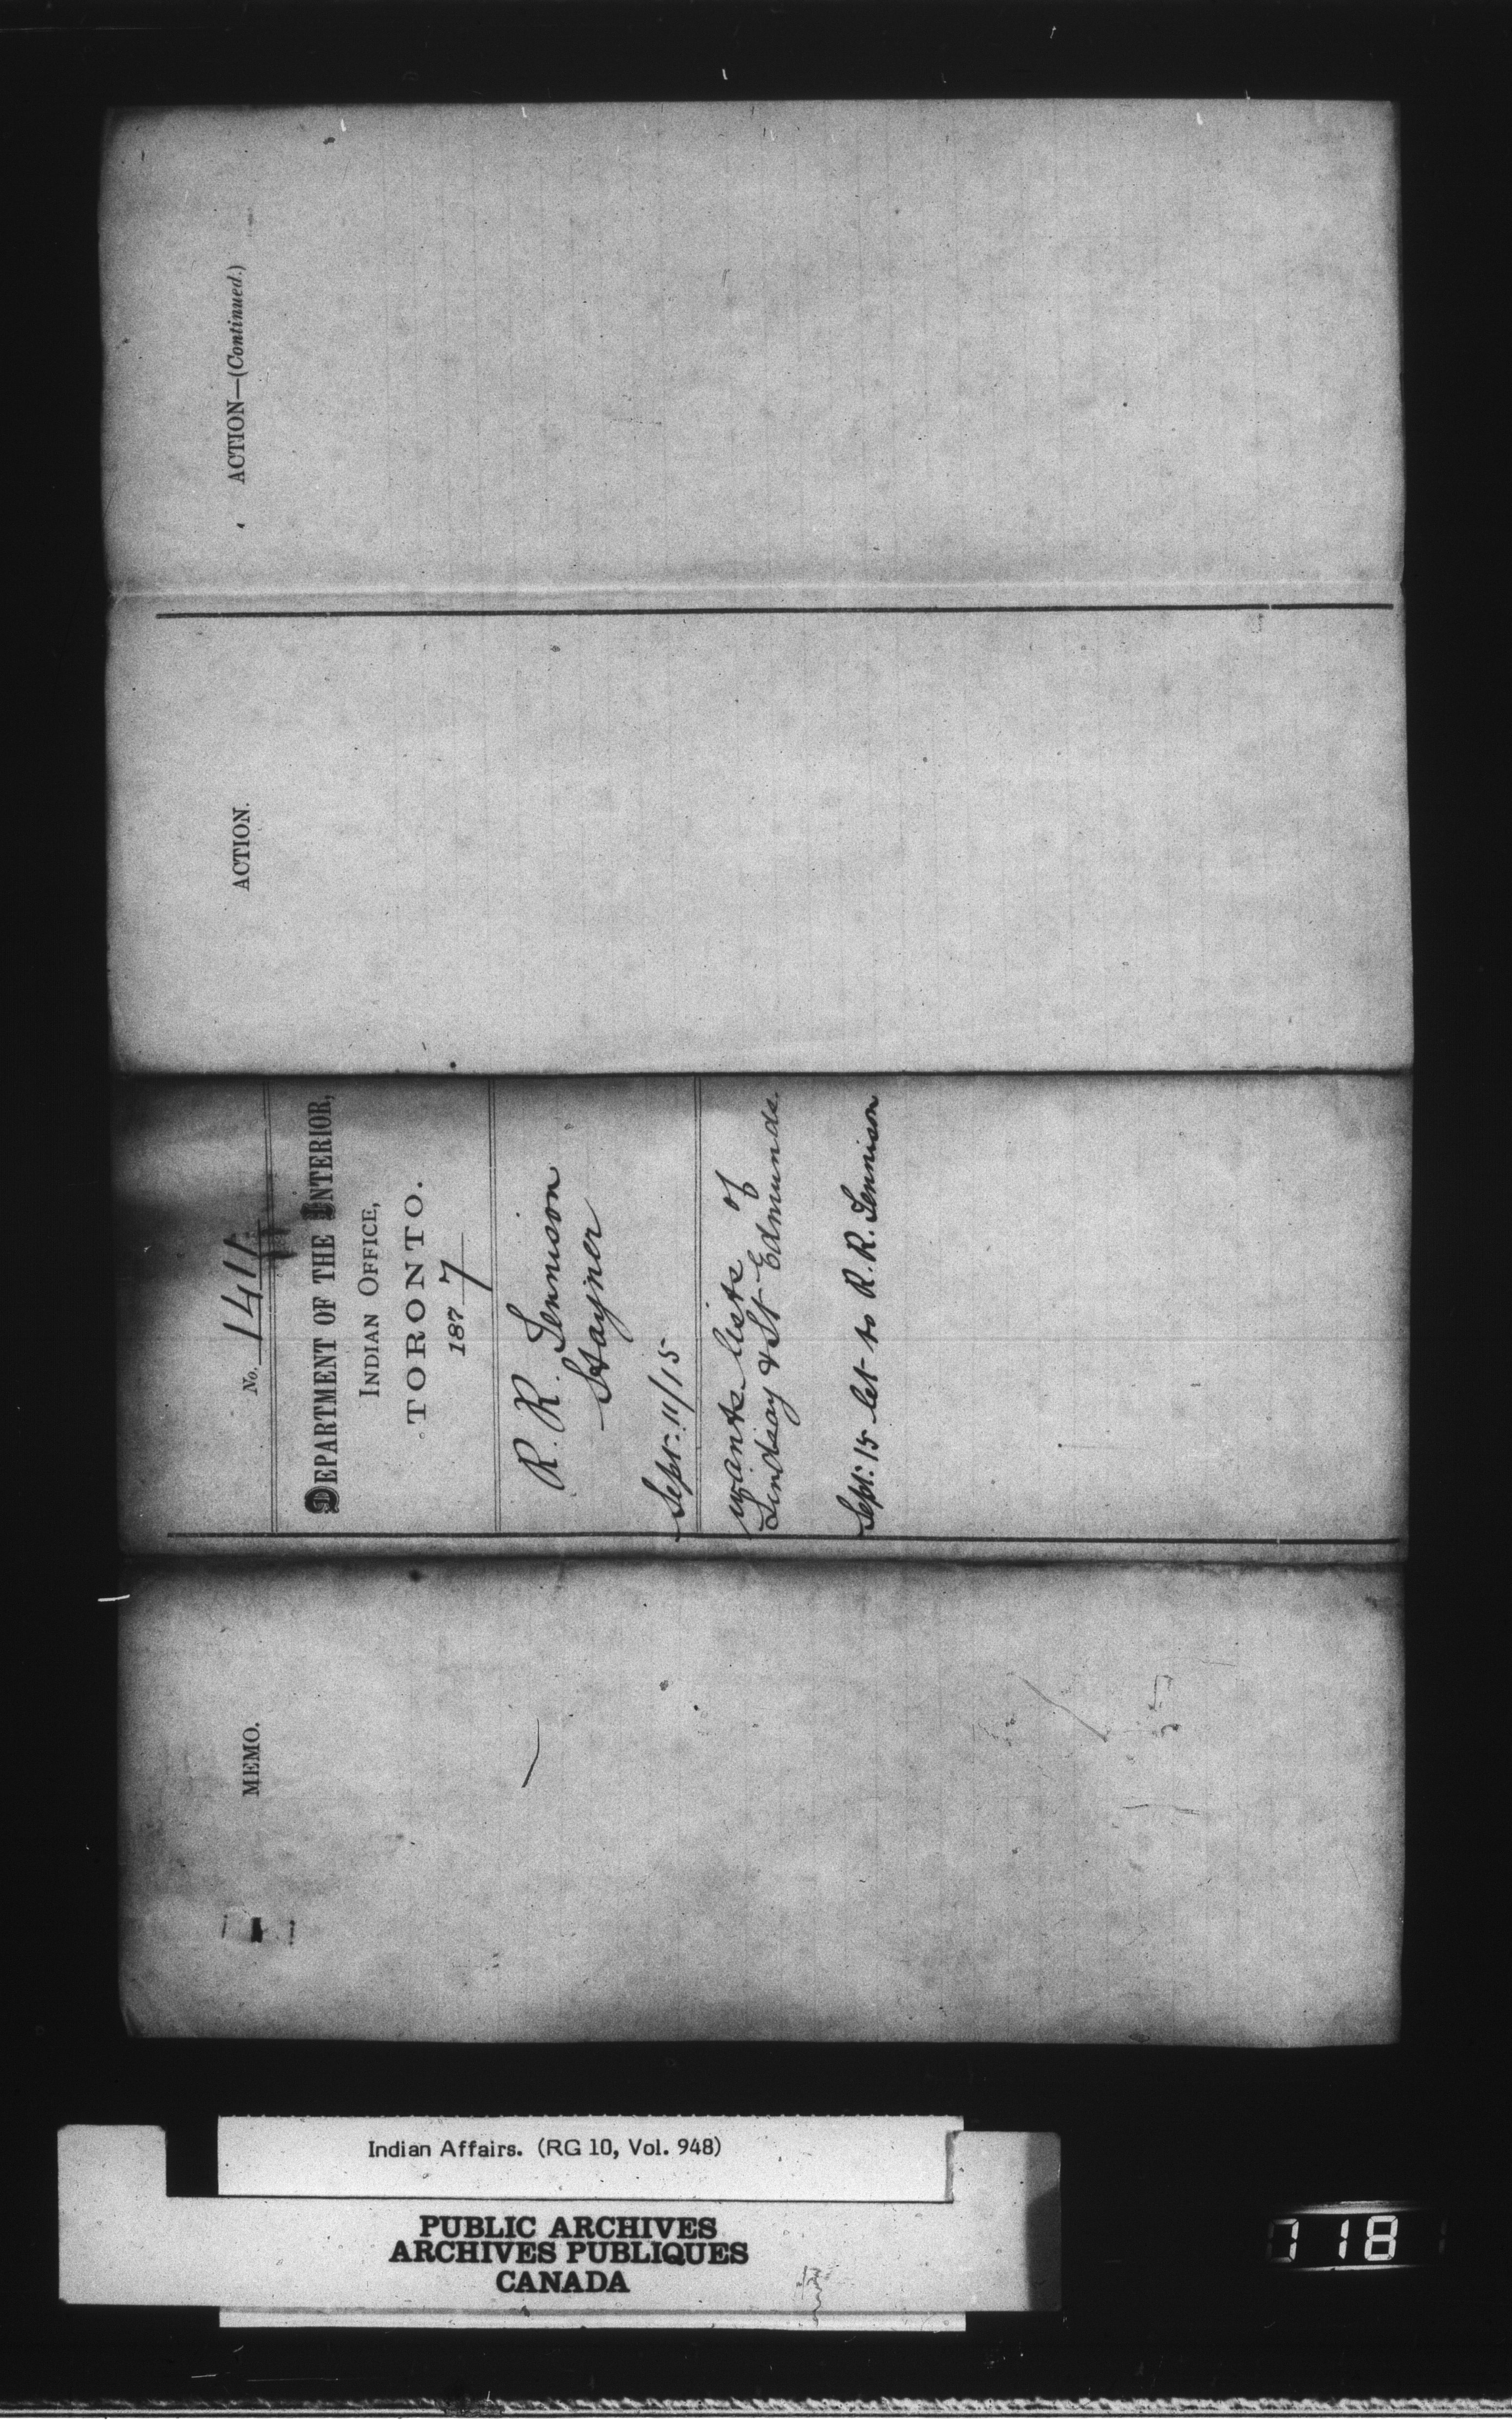 ACTION—(Continued.)
ACTION.
No. 1411
DEPARTMENT OF THE INTERIOR,
INDIAN OFFICE,
TORONTO.
1877
R. R. Lennison
Stayner
Sept: 11/15
wants lists of
Lindsay & St Edmunds.
Sept: 15 let to R. R. Lennison
MEMO.
Indian Affairs. (RG 10, Vol. 948)
PUBLIC ARCHIVES
ARCHIVES PUBLIQUES
CANADA